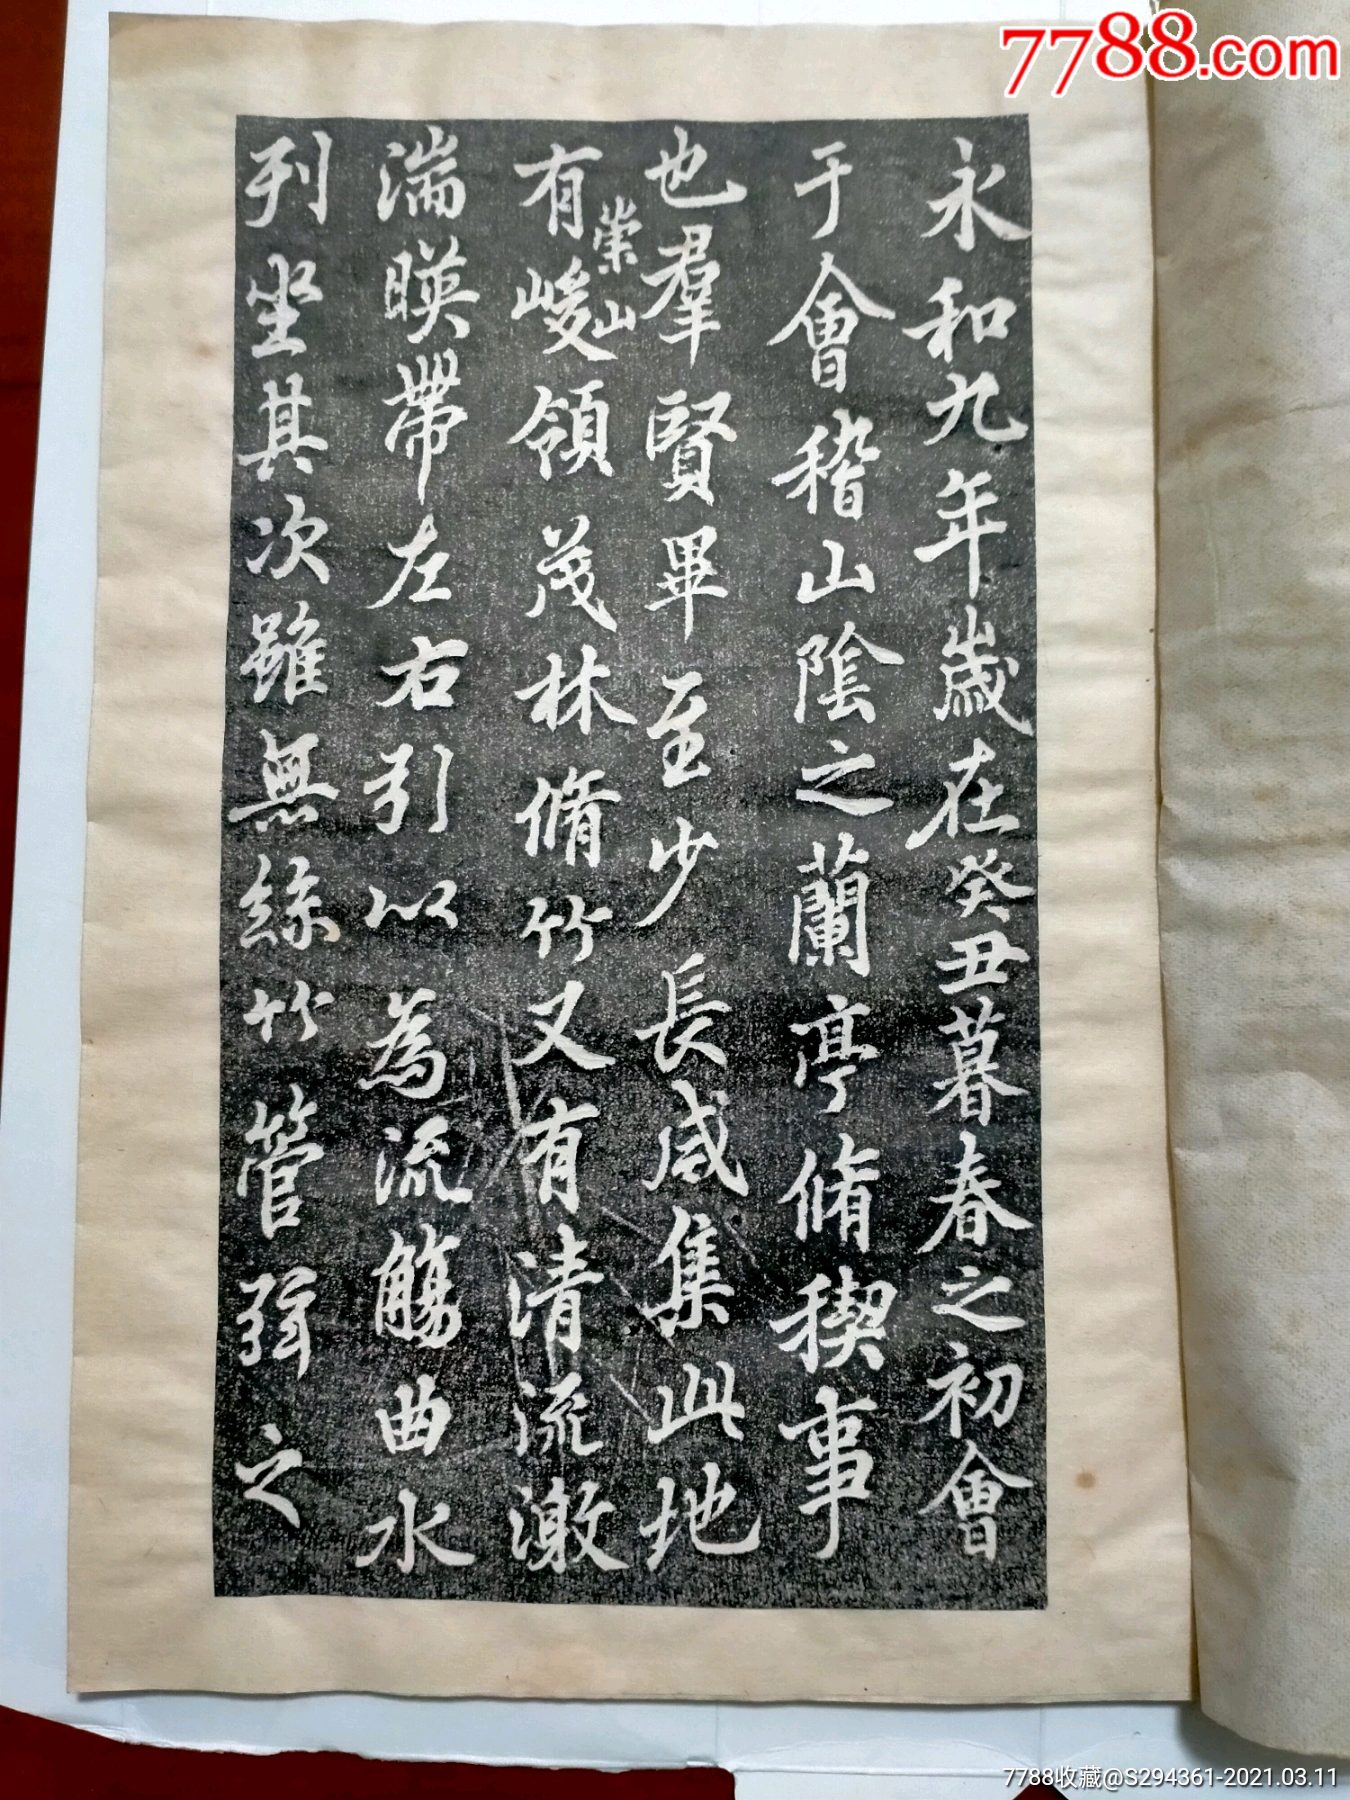 7788.com
永和九年歲在癸丑暮春之初會
于會稽山陰之蘭亭脩稧事
也羣賢畢至少長咸集此地
有崇山峻領茂林脩竹又有清流激
湍暎帶左右引以為流觴曲水
列坐其次雖無絲竹管弦之
7788收藏@S294361-2021.03.11